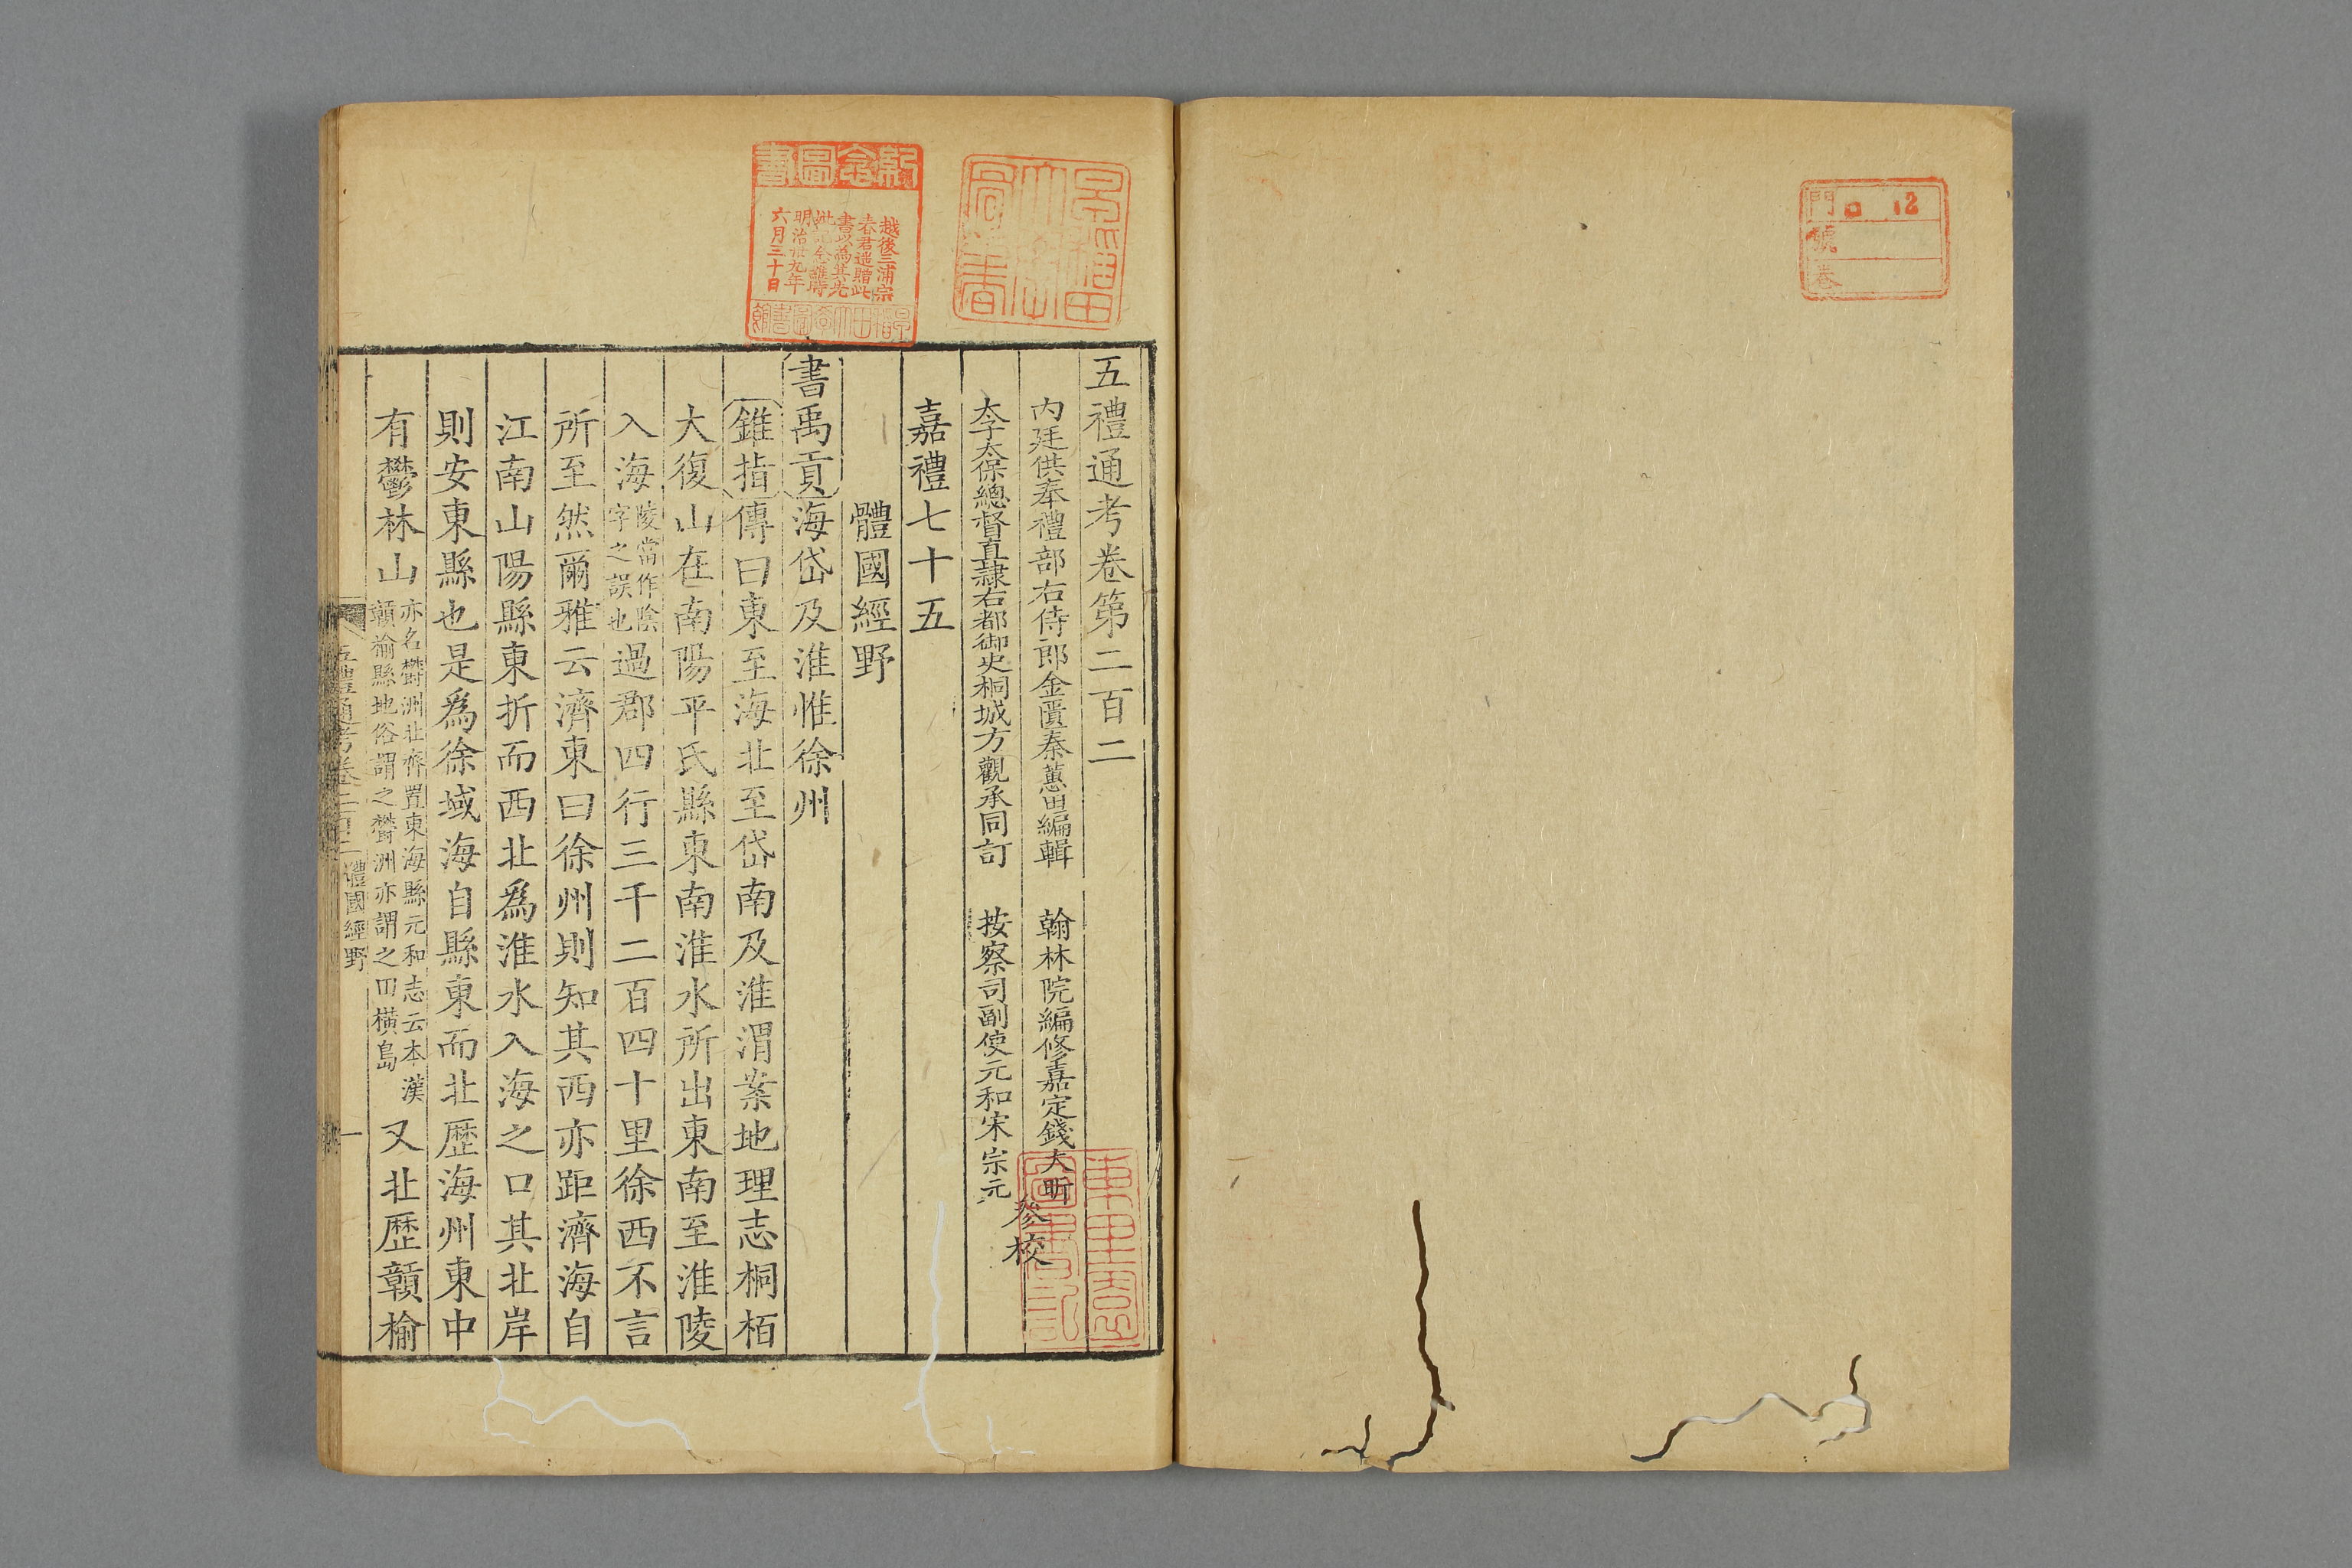 五禮通考卷第二百二
内廷供奉禮部右侍郎金匱秦蕙田編輯　翰林院編修嘉定錢大昕
太子太保總督直隷右都御史桐城方觀承同訂　按察司副使元和宋宗元
參校
嘉禮七十五
體國經野
書禹貢海岱及淮惟徐州
錐指傳曰東至海北至岱南及淮渭案地理志桐栢
大復山在南陽平氏縣東南淮水所出東南至淮陵
入海陵當作陰字之誤也過郡四行三千二百四十里徐西不言
所至然爾雅云濟東曰徐州則知其西亦距濟海自
江南山陽縣東折而西北爲淮水入海之口其北岸
則安東縣也是爲徐域海自縣東而北歷海州東中
有鬱林山亦名鬱洲北齊置東海縣元和志云本漢贛榆縣地俗謂之鬱洲亦謂之田橫島又北歷贛榆
五禮通考卷二百二 體國經野 一
紀念圖書
越後三浦宗
春君遥贈此
書以為其先
妣記念誰時
明治卅九年
六月三十日
早稲田大學圖書館
早稲田大學圖書
門 ロ 12
號
卷